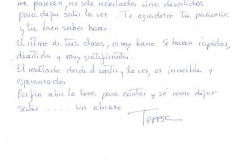 me parecen, no solo novedosos sino divertidos
para dejar salir la voz. Te agradezco tu paciencia
y tu buen saber hacer.
El ritmo de tus clases, es muy bueno se hacen rápidas,
divertidas y muy gratificantes.
El resultado desde el sentir, la voz, es increíble y
esperanzador.
Por fin abro la boca para cantar y se como dejar
salir ...... Un abrazo